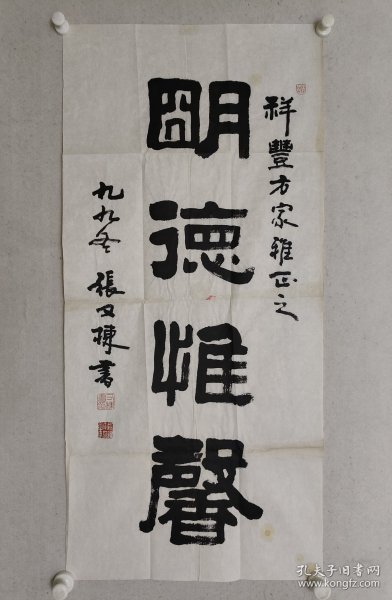 祥豐方家雅正之
明德惟馨
九九冬 張又棟書
孔夫子旧书网